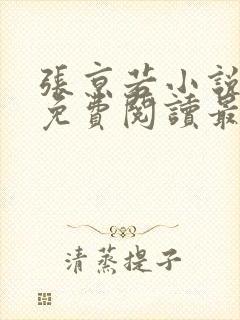 張京若小說
免費閱讀最
清蒸提子